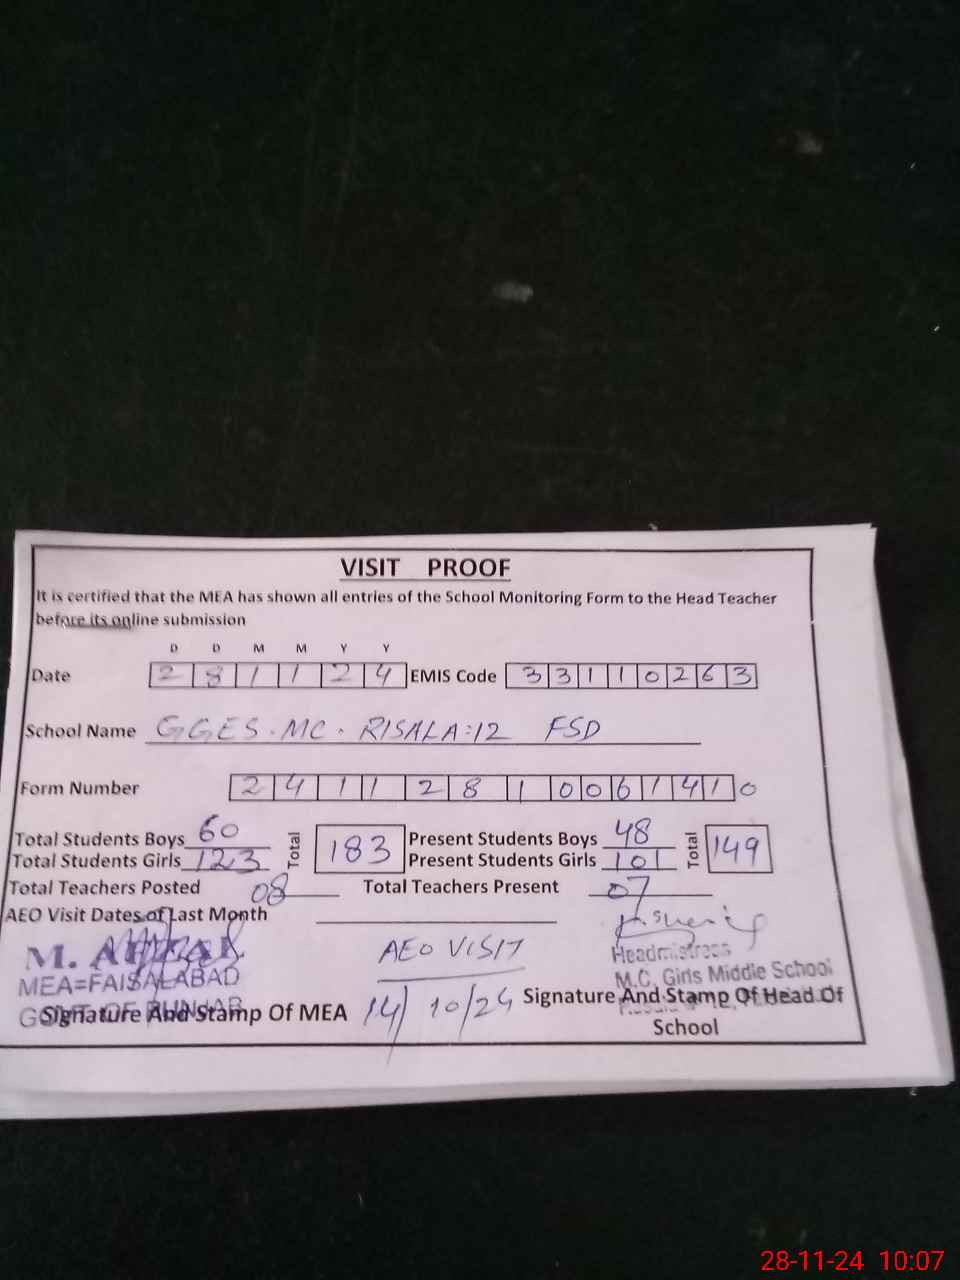 VISIT PROOF
It is certified that the MEA has shown all entries of the School Monitoring Form to the Head Teacher
before its online submission
D D M M Y Y
Date 2 8 1 1 2 4 EMIS Code 3 3 1 1 0 2 6 3
School Name GGES. MC. RISALA:12 FSD
Form Number 2 4 1 1 2 8 1 0 0 6 1 4 1 0
Total Students Boys 60 Total 183 Present Students Boys 48 Total 149
Total Students Girls 123 Present Students Girls 101
Total Teachers Posted 08 Total Teachers Present 07
AEO Visit Dates of Last Month
M. AEO VISIT Headmistress
MEA=FAISALABAD M.C. Girls Middle School
GOVT: OF PUNJAB
Signature And Stamp Of MEA 14/10/24 Signature And Stamp Of Head Of
School
28-11-24 10:07